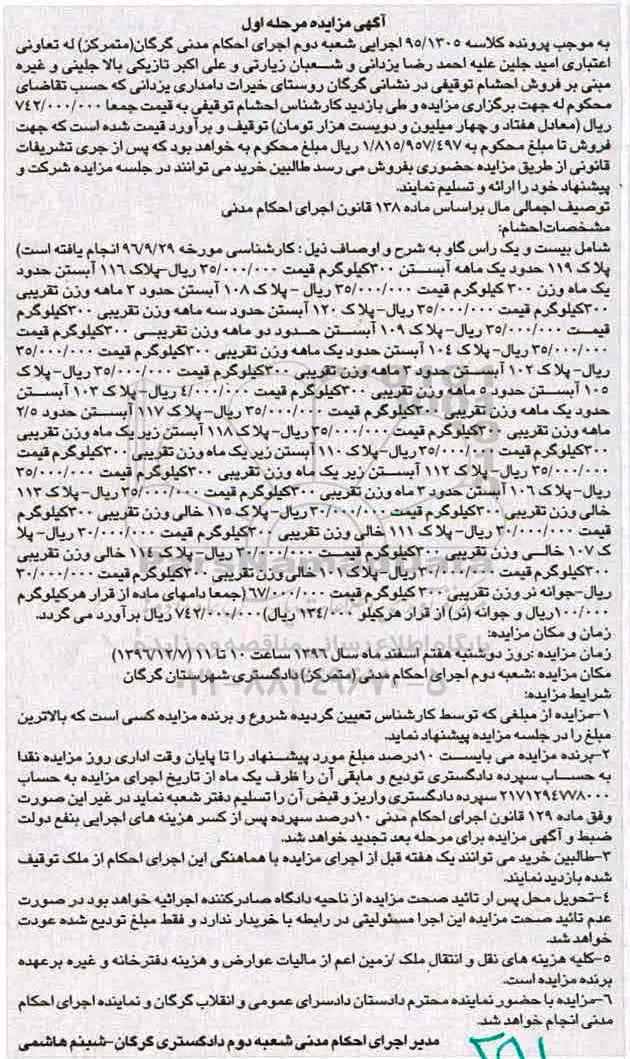 آگهی مزایده مرحله اول
به موجب پرونده کلاسه ۹۵/۱۳۰۵ اجرایی شعبه دوم اجرای احکام مدنی گرگان(متمرکز) له تعاونی
اعتباری امید جلین علیه احمد رضا یزدانی و شعبان زیارتی و علی اکبر تازیکی بالا جلینی و غیره
مبنی بر فروش احشام توقیفی در نشانی گرگان روستای خیرات دامداری یزدانی که حسب تقاضای
محکوم له جهت برگزاری مزایده و طی بازدید کارشناس احشام توقیفی به قیمت جمعا ۷۴۲/۰۰۰/۰۰۰
ریال (معادل هفتاد و چهار میلیون و دویست هزار تومان) توقیف و برآورد قیمت شده است که جهت
فروش تا مبلغ محکوم به ۱/۸۱۵/۹۵۷/۴۹۷ ریال مبلغ محکوم به خواهد بود که پس از جری تشریفات
قانونی از طریق مزایده حضوری بفروش می رسد طالبین خرید می توانند در جلسه مزایده شرکت و
پیشنهاد خود را ارائه و تسلیم نمایند.
توصیف اجمالی مال براساس ماده ۱۳۸ قانون اجرای احکام مدنی
مشخصات احشام:
شامل بیست و یک راس گاو به شرح و اوصاف ذیل : کارشناسی مورخه ۹۶/۹/۲۹ انجام یافته است)
پلاک ۱۱۹ حدود یک ماهه آبستن ۳۰۰کیلوگرم قیمت ۳۵/۰۰۰/۰۰۰ ریال-پلاک ۱۱۶ آبستن حدود
یک ماه وزن ۳۰۰ کیلوگرم قیمت ۳۵/۰۰۰/۰۰۰ ریال - پلاک ۱۰۸ آبستن حدود ۲ ماهه وزن تقریبی
۳۰۰کیلوگرم قیمت ۳۵/۰۰۰/۰۰۰ ریال- پلاک ۱۲۰ آبستن حدود سه ماهه وزن تقریبی ۳۰۰کیلوگرم
قیمت ۳۵/۰۰۰/۰۰۰ ریال- پلاک ۱۰۹ آبستن حدود دو ماهه وزن تقریبی ۳۰۰کیلوگرم قیمت
۳۵/۰۰۰/۰۰۰ ریال- پلاک ۱۰۴ آبستن حدود یک ماهه وزن تقریبی ۳۰۰کیلوگرم قیمت ۳۵/۰۰۰/۰۰۰
ریال- پلاک ۱۰۲ آبستن حدود ۳ ماهه وزن تقریبی ۳۰۰کیلوگرم قیمت ۳۵/۰۰۰/۰۰۰ ریال- پلاک
۱۰۵ آبستن حدود ۵ ماهه وزن تقریبی ۳۰۰کیلوگرم قیمت ۴/۰۰۰/۰۰۰ ریال- پلاک ۱۰۳ آبستن
حدود یک ماهه وزن تقریبی ۳۰۰کیلوگرم قیمت ۳۵/۰۰۰/۰۰۰ ریال- پلاک ۱۱۷ آبستن حدود ۲/۵
ماهه وزن تقریبی ۳۰۰کیلوگرم قیمت ۳۵/۰۰۰/۰۰۰ ریال- پلاک ۱۱۸ آبستن زیر یک ماه وزن تقریبی
۳۰۰کیلوگرم قیمت ۳۵/۰۰۰/۰۰۰ ریال- پلاک ۱۱۰ آبستن زیر یک ماه وزن تقریبی ۳۰۰کیلوگرم قیمت
۳۵/۰۰۰/۰۰۰ ریال- پلاک ۱۱۲ آبستن زیر یک ماه وزن تقریبی ۳۰۰کیلوگرم قیمت ۳۵/۰۰۰/۰۰۰
ریال- پلاک ۱۰۶ آبستن حدود ۳ ماه وزن تقریبی ۳۰۰کیلوگرم قیمت ۳۵/۰۰۰/۰۰۰ ریال- پلاک ۱۱۳
خالی وزن تقریبی ۳۰۰کیلوگرم قیمت ۳۰/۰۰۰/۰۰۰ ریال- پلاک ۱۱۵ خالی وزن تقریبی ۳۰۰کیلوگرم
قیمت ۳۰/۰۰۰/۰۰۰ ریال- پلاک ۱۱۱ خالی وزن تقریبی ۳۰۰کیلوگرم قیمت ۳۰/۰۰۰/۰۰۰ ریال- پلا
ک ۱۰۷ خالی وزن تقریبی ۳۰۰کیلوگرم قیمت ۳۰/۰۰۰/۰۰۰ ریال- پلاک ۱۱۴ خالی وزن تقریبی
۳۰۰کیلوگرم قیمت ۳۰/۰۰۰/۰۰۰ ریال- پلاک ۱۰۱ خالی وزن تقریبی ۳۰۰کیلوگرم قیمت ۳۰/۰۰۰/۰۰۰
ریال-جوانه نر وزن تقریبی ۳۰۰ کیلوگرم قیمت ۶۷/۰۰۰/۰۰۰ (جمعا دامهای ماده از قرار هرکیلوگرم
۱۰۰/۰۰۰ ریال و جوانه (نر) از قرار هرکیلو ۱۳۴/۰۰۰ ریال)۷۴۲/۰۰۰/۰۰۰ ریال برآورد می گردد.
زمان و مکان مزایده:
زمان مزایده :روز دوشنبه هفتم اسفند ماه سال ۱۳۹۶ ساعت ۱۰ تا ۱۱ (۱۳۹۶/۱۲/۷)
مکان مزایده :شعبه دوم اجرای احکام مدنی (متمرکز) دادگستری شهرستان گرگان
شرایط مزایده:
۱-مزایده از مبلغی که توسط کارشناس تعیین گردیده شروع و برنده مزایده کسی است که بالاترین
مبلغ را در جلسه مزایده پیشنهاد نماید.
۲-برنده مزایده می بایست ۱۰درصد مبلغ مورد پیشنهاد را تا پایان وقت اداری روز مزایده نقدا
به حساب سپرده دادگستری تودیع و مابقی آن را ظرف یک ماه از تاریخ اجرای مزایده به حساب
۲۱۷۱۲۹۴۷۷۸۰۰۰ سپرده دادگستری واریز و قبض آن را تسلیم دفتر شعبه نماید در غیر این صورت
وفق ماده ۱۲۹ قانون اجرای احکام مدنی ۱۰درصد سپرده پس از کسر هزینه های اجرایی بنفع دولت
ضبط و آگهی مزایده برای مرحله بعد تجدید خواهد شد.
۳-طالبین خرید می توانند یک هفته قبل از اجرای مزایده با هماهنگی این اجرای احکام از ملک توقیف
شده بازدید نمایند.
۴-تحویل محل پس از تائید صحت مزایده از ناحیه دادگاه صادرکننده اجرائیه خواهد بود در صورت
عدم تائید صحت مزایده این اجرا مسئولیتی در رابطه با خریدار ندارد و فقط مبلغ تودیع شده عودت
خواهد شد.
۵-کلیه هزینه های نقل و انتقال ملک /زمین اعم از مالیات عوارض و هزینه دفترخانه و غیره برعهده
برنده مزایده است.
۶-مزایده با حضور نماینده محترم دادستان دادسرای عمومی و انقلاب گرگان و نماینده اجرای احکام
مدنی انجام خواهد شد.
مدیر اجرای احکام مدنی شعبه دوم دادگستری گرگان-شبنم هاشمی